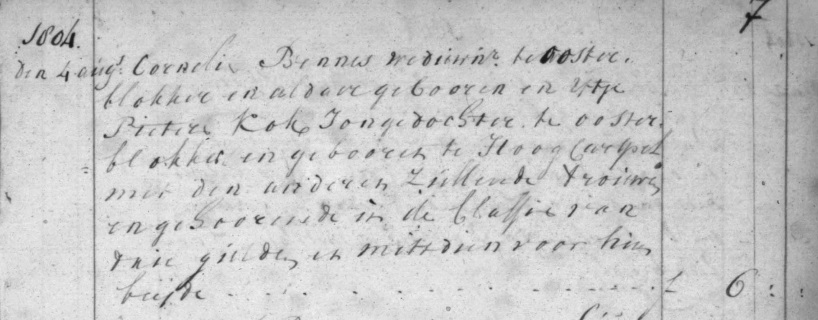 7
1804.
den 4 augt. Cornelis Bennes weduwnr. te ooster.
blokker en aldaar gebooren en Ytje
Pieters Kok Jongedochter te ooster.
blokker en gebooren te Hoog Carspel
met den anderen Zullende trouwen
en gehoorende in de Classis van
drie gulden en mitsdien voor hun
beijde . . . . . . . . . . . . . . . . ƒ 6 :